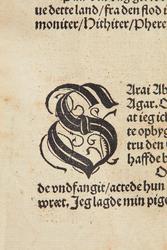 ue dette land/fra den flod i
moniter/Hithiter/Phere
SArai Ab
Agar. O
at ieg ick
te opbyg
tru den
haffde b
O
de vndfangit/actede hun
wreet. Jeg lagde min pige